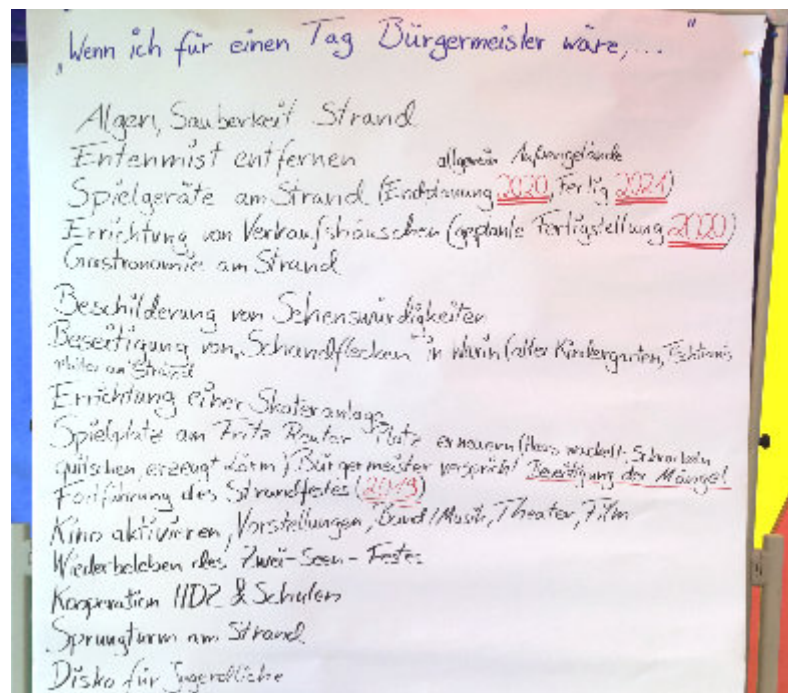 „Wenn ich für einen Tag Bürgermeister wäre,..."
Algen, Sauberkeit Strand
Entenmist entfernen allgemein Außengelände
Spielgeräte am Strand (Endstauung 2020, Fertig 2021)
Errichtung von Verkaufshäuschen (geplante Fertigstellung 2020)
Gastronomie am Strand
Beschilderung von Sehenswürdigkeiten
Beseitigung von „Schandflecken" in Warin (alter Kindergarten, Tischtennis
am Strand
Errichtung einer Skateranlage
Spielplatz am Fritz Reuter Platz erneuern (wackelt, Schrauben
quitschen, erzeugt Lärm) Bürgermeister verspricht Beseitigung der Mängel
Fortführung des Strandfestes (2019)
Kino aktivieren, Vorstellungen, Band/Musik, Theater, Film
Wiederbeleben des Zwei-Seen-Festes
Kooperation HDZ & Schulen
Sprungturm am Strand
Disko für Jugendliche